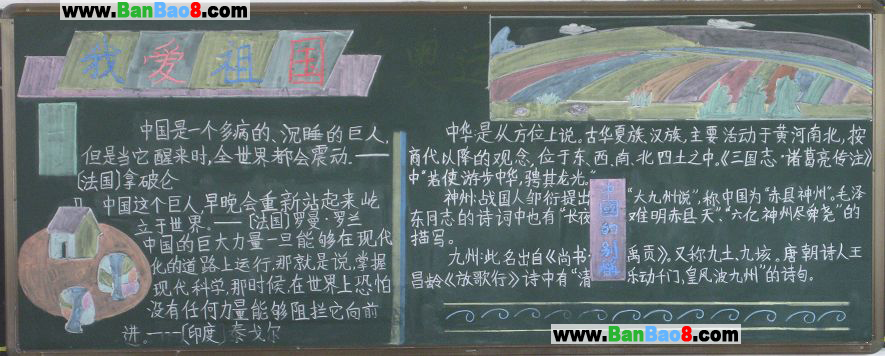 www.BanBao8.com
www.BanBao8.com
我爱祖国
中国是一个多病的、沉睡的巨人,
但是当它醒来时,全世界都会震动.——
〔法国〕拿破仑
中国这个巨人,早晚会重新站起来屹
立于世界。——〔法国〕罗曼·罗兰
中国的巨大力量一旦能够在现代
化的道路上运行,那就是说,掌握
现代科学,那时候,在世界上恐怕
没有任何力量能够阻拦它向前
进。---〔印度〕泰戈尔
中国的别称
中华:是从方位上说。古华夏族、汉族,主要活动于黄河南北,按
商代以降的观念,位于东、西、南、北四土之中。《三国志·诸葛亮传注》
中"若使游步中华,骋其龙光。"
神州:战国人邹衍提出"大九州说",称中国为"赤县神州"。毛泽
东同志的诗词中也有"长夜难明赤县天"、"六亿神州尽舜尧"的
描写。
九州:此名出自《尚书·禹贡》。又称九土、九垓。唐朝诗人王
昌龄《放歌行》诗中有"清乐动千门,皇风波九州"的诗句。
www.BanBao8.com